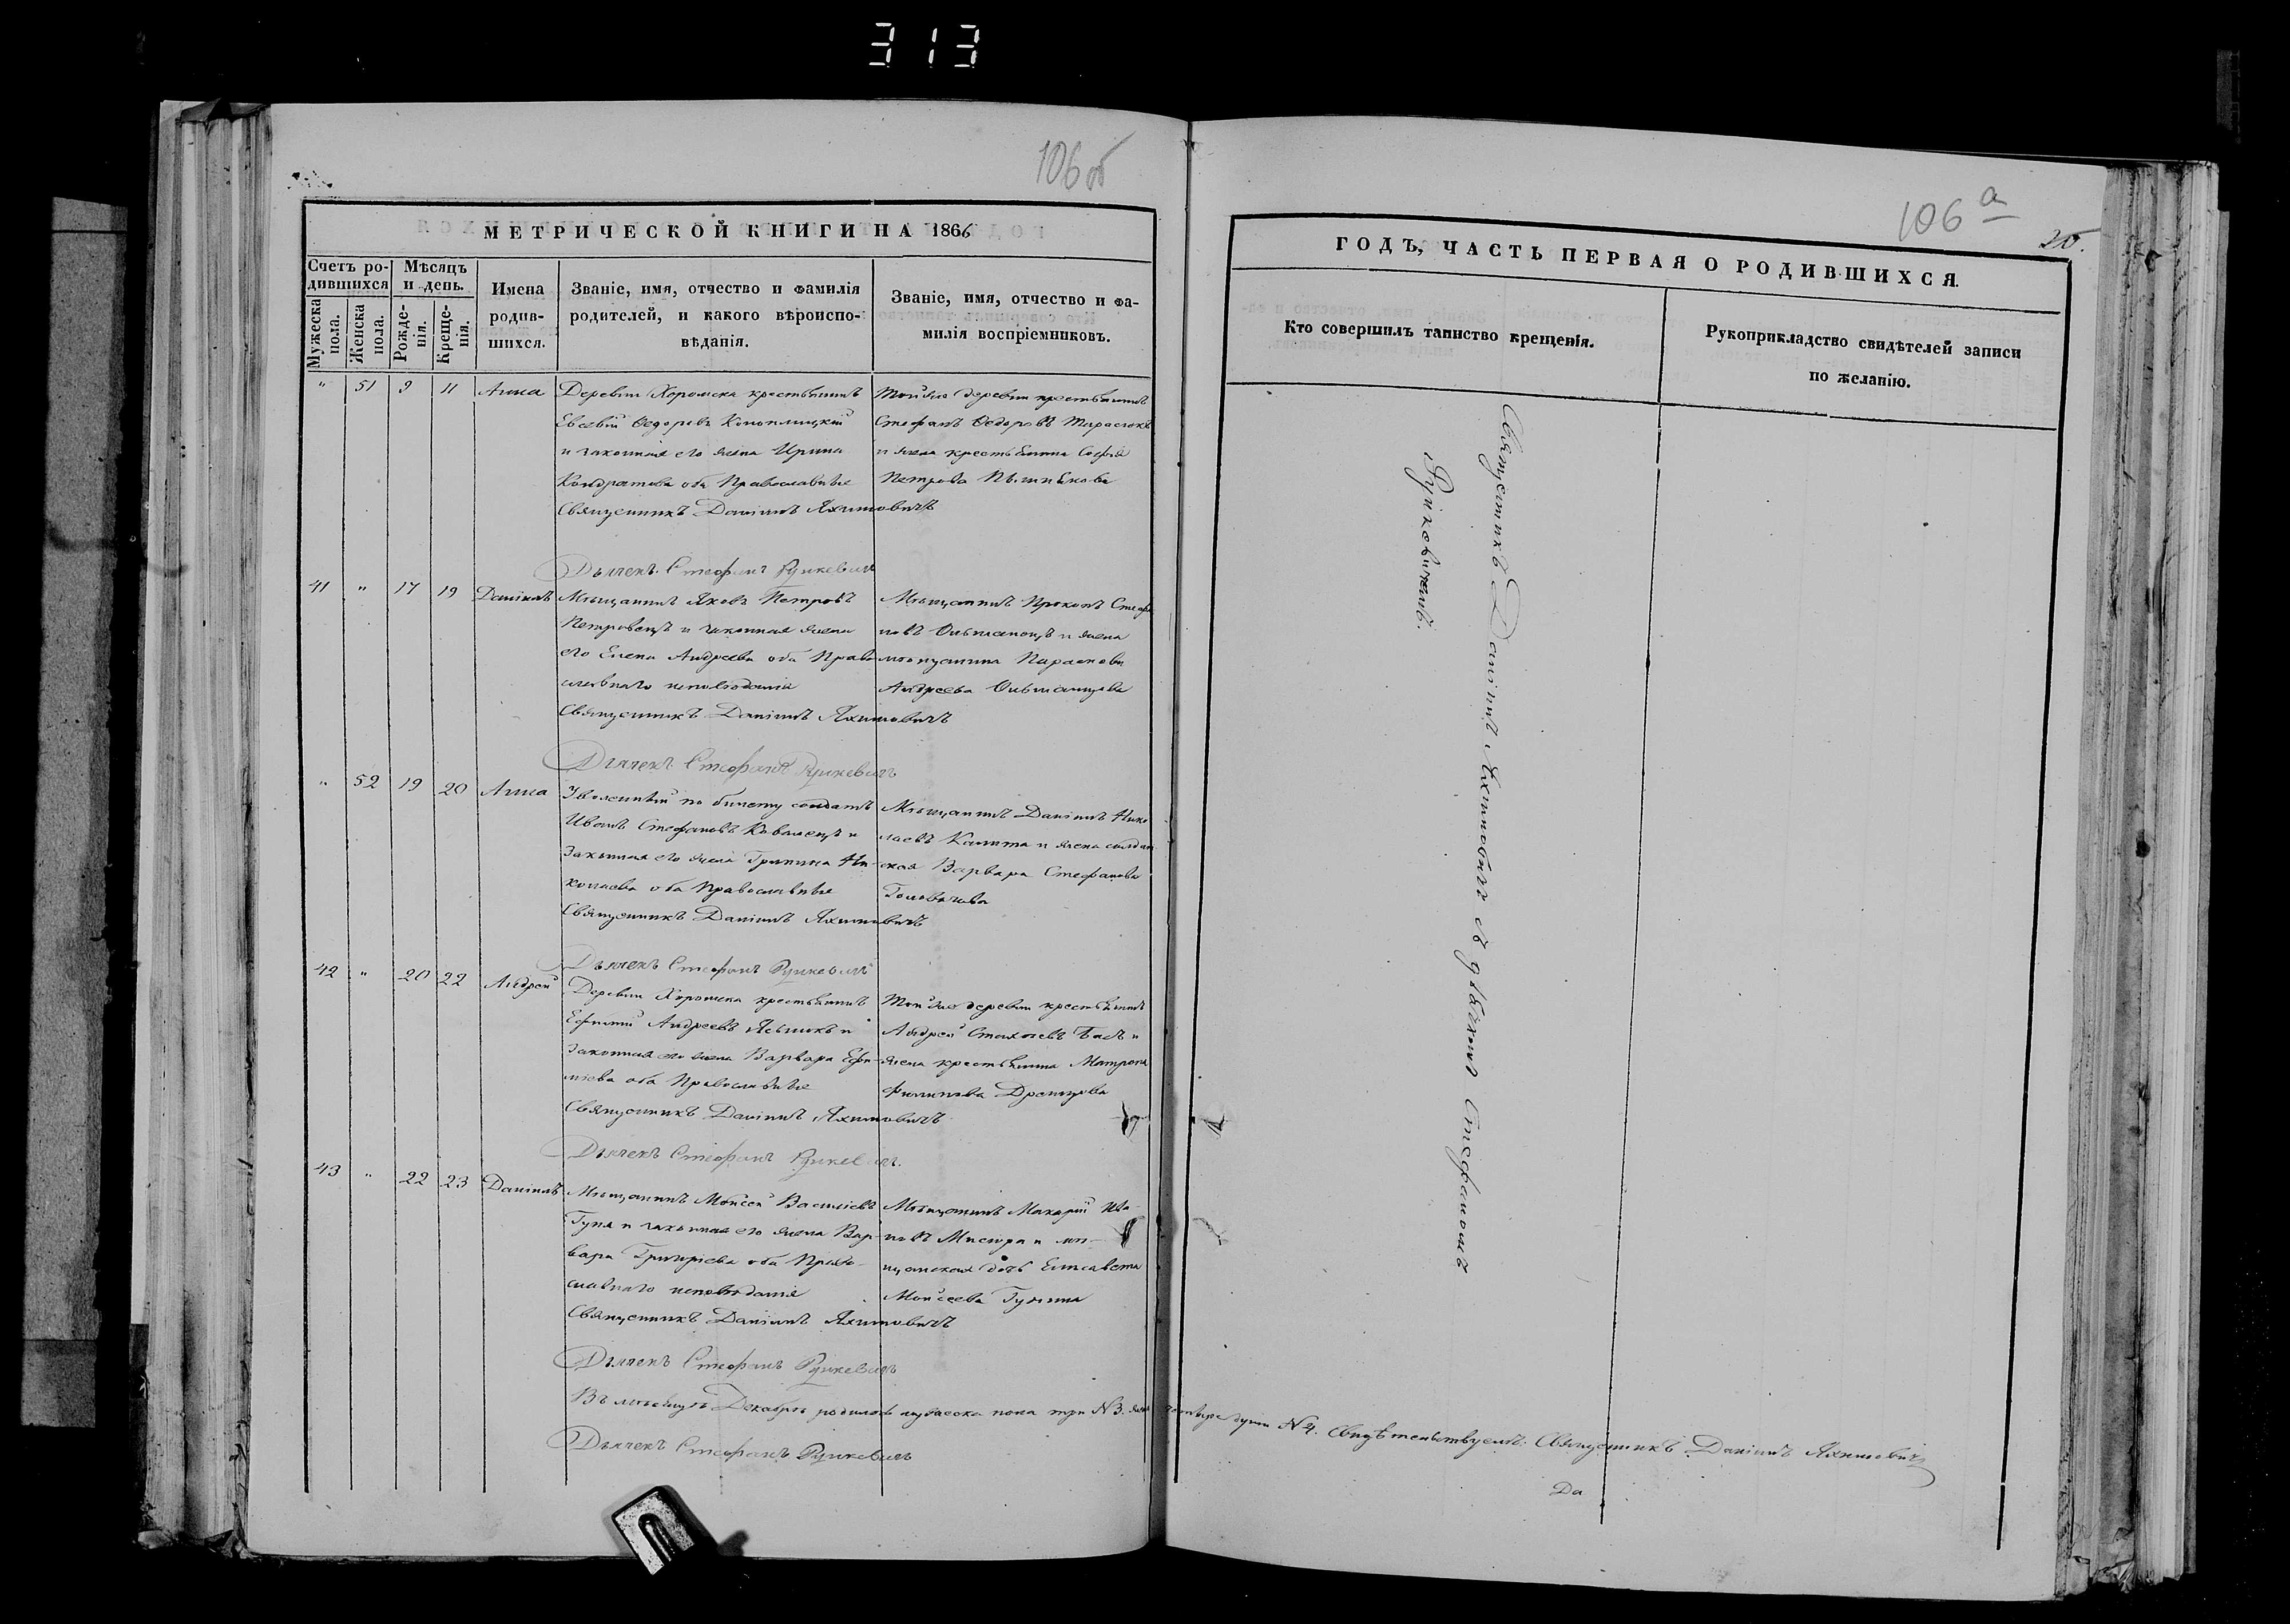 313
106 об
МЕТРИЧЕСКОЙ КНИГИ НА 1866
Счетъ ро-
дившихся
Мужеска
пола.
Женска
пола.
Мѣсяцъ
и день.
Рожде-
нія.
Креще-
нія.
Имена
родив-
шихся.
Званіе, имя, отчество и фамилія
родителей, и какого вѣроиспо-
вѣданія.
Званіе, имя, отчество и фа-
милія воспріемниковъ.
" 51 9 11 Анна
Деревни Хоромска крестьянинъ
Евсевій Федоровъ
и законная его жена Ирина
Кондратова оба Православные
Священникъ Даніилъ Яхимовичъ
Дьячекъ Стефанъ Руцкевичъ
Той же деревни крестьянинъ
Стефанъ Федоровъ
и жена крестьянина Софія
Петрова
41 " 17 19 Даніилъ
Мѣщанинъ Яковъ Петровъ
Петровецъ и законная жена
его Елена Андреева оба Право
славнаго исповѣданія
Священникъ Даніилъ Яхимовичъ
Дьячекъ Стефанъ Руцкевичъ
Мѣщанинъ Прокопъ Стефа
новъ Ольшанецъ и жена
мѣщанина Параскева
Андреева Ольшанцова
" 52 19 20 Анна
Уволенный по билету солдатъ
Иванъ Стефановъ Ковалецъ и
Законная его жена Грипина Ни-
колаева оба Православные
Священникъ Даніилъ Яхимовичъ
Дьячекъ Стефанъ Руцкевичъ
Мѣщанинъ Даніилъ Нико
лаевъ Калита и жена солдат
ская Варвара Стефанова
42 " 20 22 Андрей
Деревни Хоромска крестьянинъ
Ефимій Андреевъ и
Законная его жена Варвара Ефи-
міева оба Православные
Священникъ Даніилъ Яхимовичъ
Дьячекъ Стефанъ Руцкевичъ.
Той же деревни крестьянинъ
Андрей Басъ и
жена крестьянина Матрона
Филипова
43 " 22 23 Даніилъ
Мѣщанинъ Мойсей Василіевъ
Гуня и законная его жена Вар-
вара Григоріева оба Право-
славнаго исповѣданія
Священникъ Даніилъ Яхимовичъ
Дьячекъ Стефанъ Руцкевичъ
Мѣщанинъ Макарій Ива-
новъ и мѣ-
щанская дочь Елисавета
Моисеева Гунина
Въ мѣсяцѣ Декабрѣ родилось мужеска пола три №3. четыре души №4. Свидѣтельствуемъ: Священникъ Даніилъ Яхимовичъ
Дьячекъ Стефанъ Руцкевичъ
106 а
ГОДЪ, ЧАСТЬ ПЕРВАЯ О РОДИВШИХСЯ.
Кто совершилъ таинство крещенія.
Рукоприкладство свидѣтелей записи
по желанію.
Священникъ Даніилъ Яхимовичъ съ дьячкомъ Стефаномъ
Руцкевичемъ.
Да